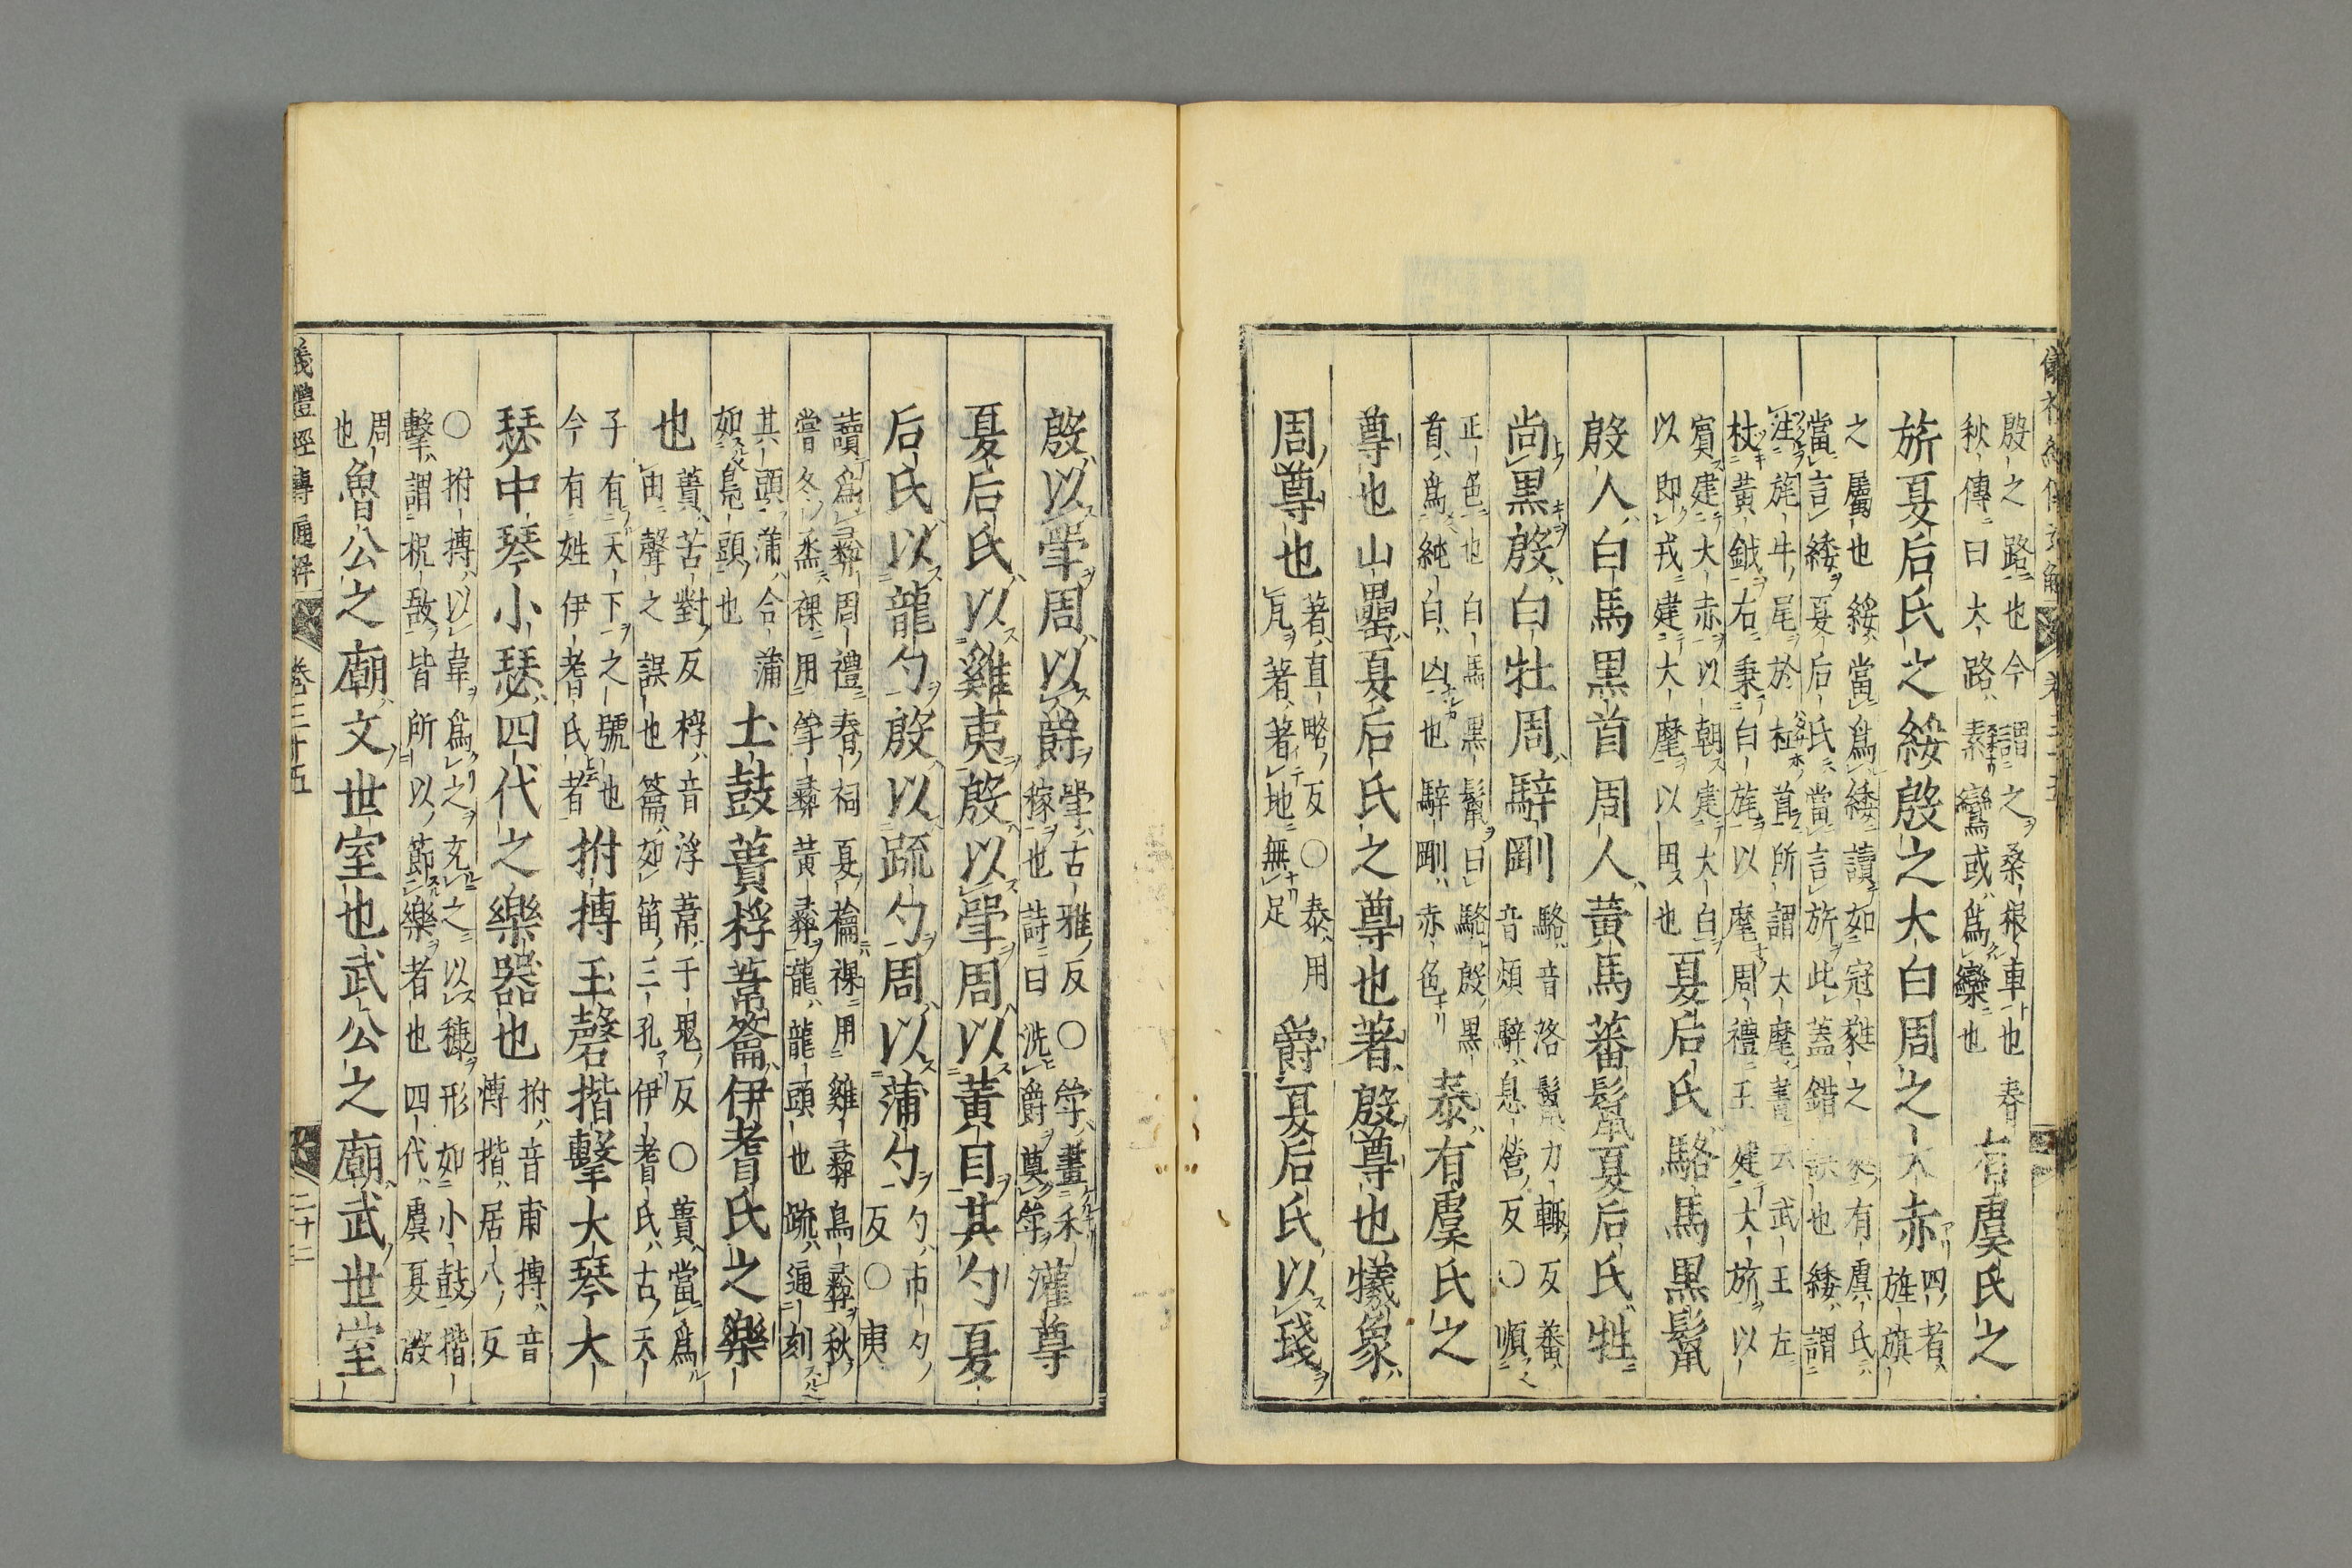 儀禮經傳通解 卷三十五
殷之路也今謂之桑根車也春秋傳曰大路素鸞或爲欒也有虞氏之
旂夏后氏之綏殷之大白周之大赤四者旌旗
之屬也綏當爲緌讀如冠蕤之蕤有虞氏當言緌夏后氏當言旂此蓋錯誤也緌謂
注旄牛尾於杠首所謂大麾書云武王左杖黃鉞右秉白旄以麾周禮王建大旂以
賓建大赤以朝建大白以即戎建大麾以田也夏后氏駱馬黑鬣
殷人白馬黑首周人黃馬蕃鬣夏后氏牲
尚黑殷白牡周騂剛駱音洛鬣力輙反蕃音煩騂息營反○順
正色也白馬黑鬣曰駱殷黑首爲純白凶也騂剛赤色泰有虞氏之
尊也山罍夏后氏之尊也著殷尊也犧象
周尊也著直略反○泰用瓦著著地無足爵夏后氏以琖
殷以斝周以爵斝古雅反○斝畫禾稼也詩曰洗爵奠斝灌尊
夏后氏以雞夷殷以斝周以黃目其勺夏
后氏以龍勺殷以疏勺周以蒲勺勺市夕反○夷
讀爲彝周禮春祠夏禴祼用雞彝鳥彝秋嘗冬烝祼用斝彝黃彝龍龍頭也疏通刻
其頭蒲合蒲如鳧頭也土鼓蕢桴葦籥伊耆氏之樂
也蕢苦對反桴音浮葦于鬼反○蕢當爲凷聲之誤也籥如笛三孔伊耆氏古天
子有天下之號也今有姓伊耆氏者拊搏玉磬揩擊大琴大
瑟中琴小瑟四代之樂器也拊音甫搏音博揩居八反
○拊搏以韋爲之充之以穅形如小鼓揩擊謂柷敔皆所以節樂者也四代虞夏殷
周也魯公之廟文世室也武公之廟武世室
儀禮經傳通解 卷三十五 二十二